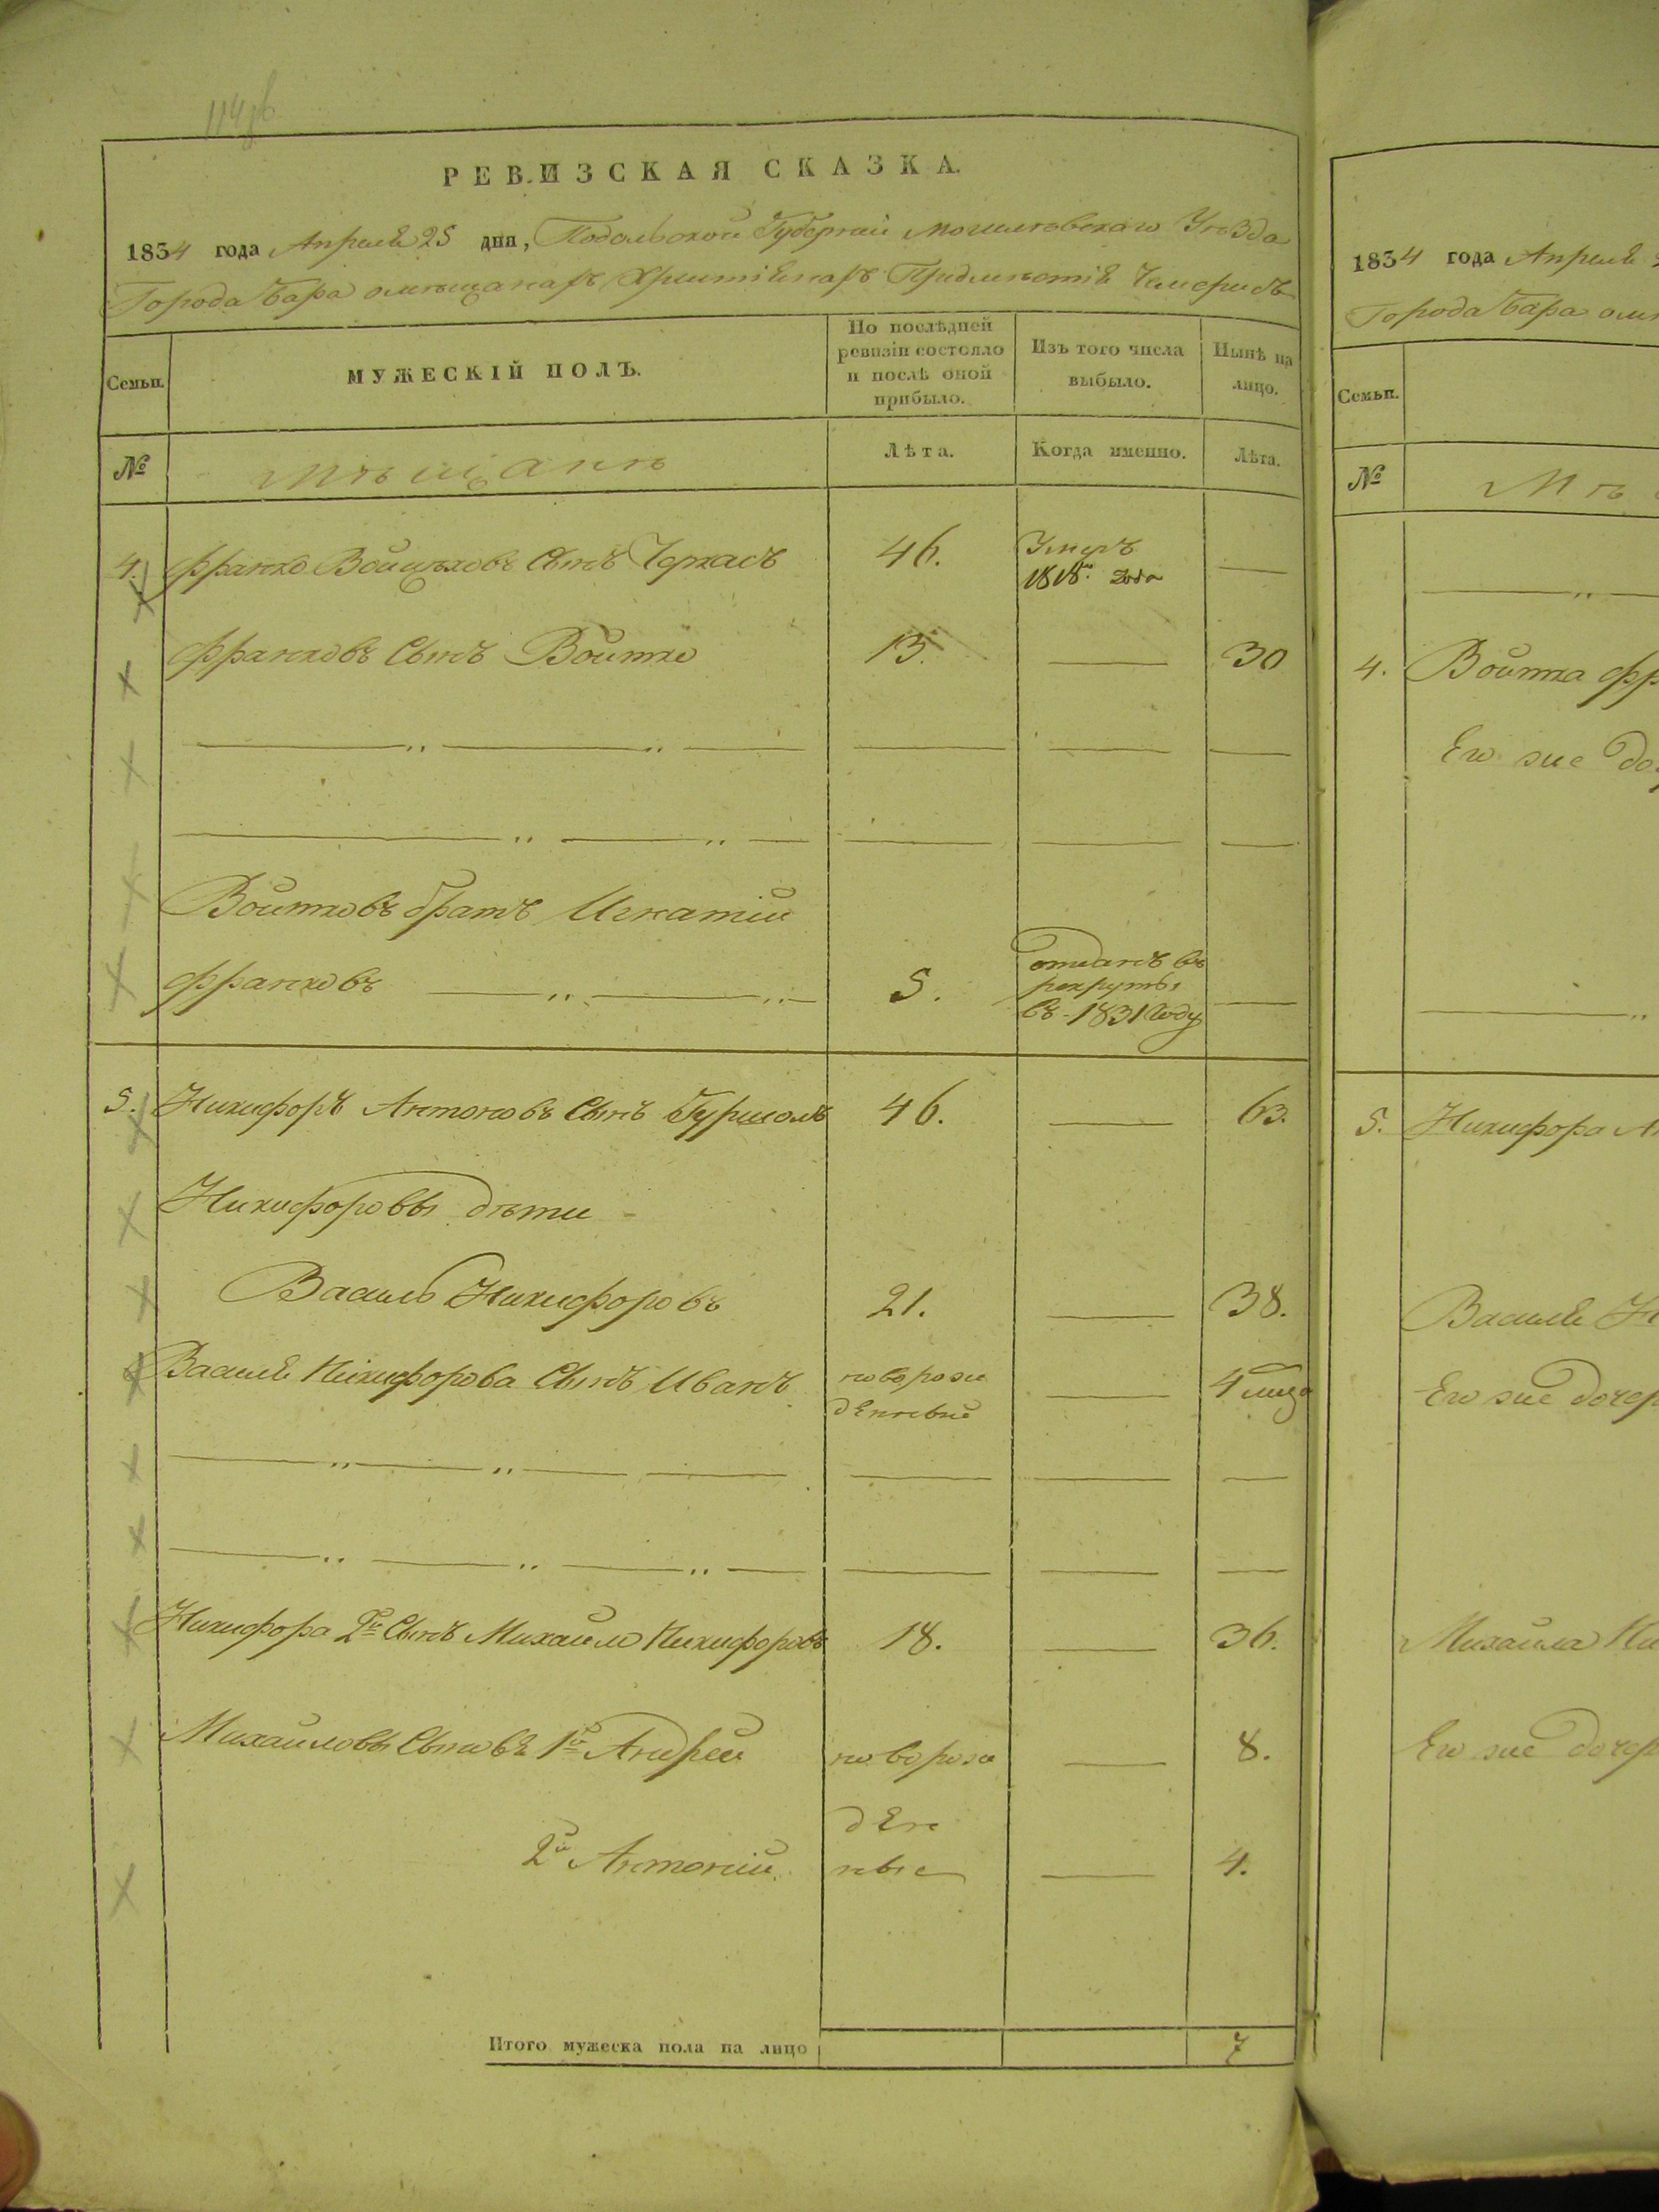 114об
РЕВИЗСКАЯ СКАЗКА.
1834 года Апреля 25 дня, Подольской Губернии Могилевского Уѣзда
Города Бара о мѣщанахъ Християнахъ Предмѣстія Чемерисъ
Семьи.
МУЖЕСКІЙ ПОЛЪ.
По послѣдней ревизіи состояло и послѣ оной прибыло.
Изъ того числа выбыло.
Нынѣ на лицо.
№
Мѣщане
Лѣта.
Когда именно.
Лѣта.
4. Франко Войцѣховъ Сынъ Черкасъ 46. Умеръ 1818го года —
Франковъ Сынъ Войтко 13. — 30
Войтковъ братъ Игнатій
Франковъ 5. отданъ въ рекруты въ 1831 году —
5. Никифоръ Антоновъ Сынъ 46. — 63.
Никифоровы дѣти
Василь Никифоровъ 21. — 38.
Василя Никифорова Сынъ Иванъ новорожденные — 4
Никифора 2й Сынъ Михайло Никифоровъ 18. — 36.
Михайловы Сыновя 1й Андрей новорож — 8.
ден
2й Антоній ные — 4.
Итого мужеска пола на лицо 7
1834 года Апреля
Города Бара
Семьи.
№
Мѣ
4. Войтка
Его же
5. Никифора
Василя
Его же дочер
Михайла Ни
Его же дочер